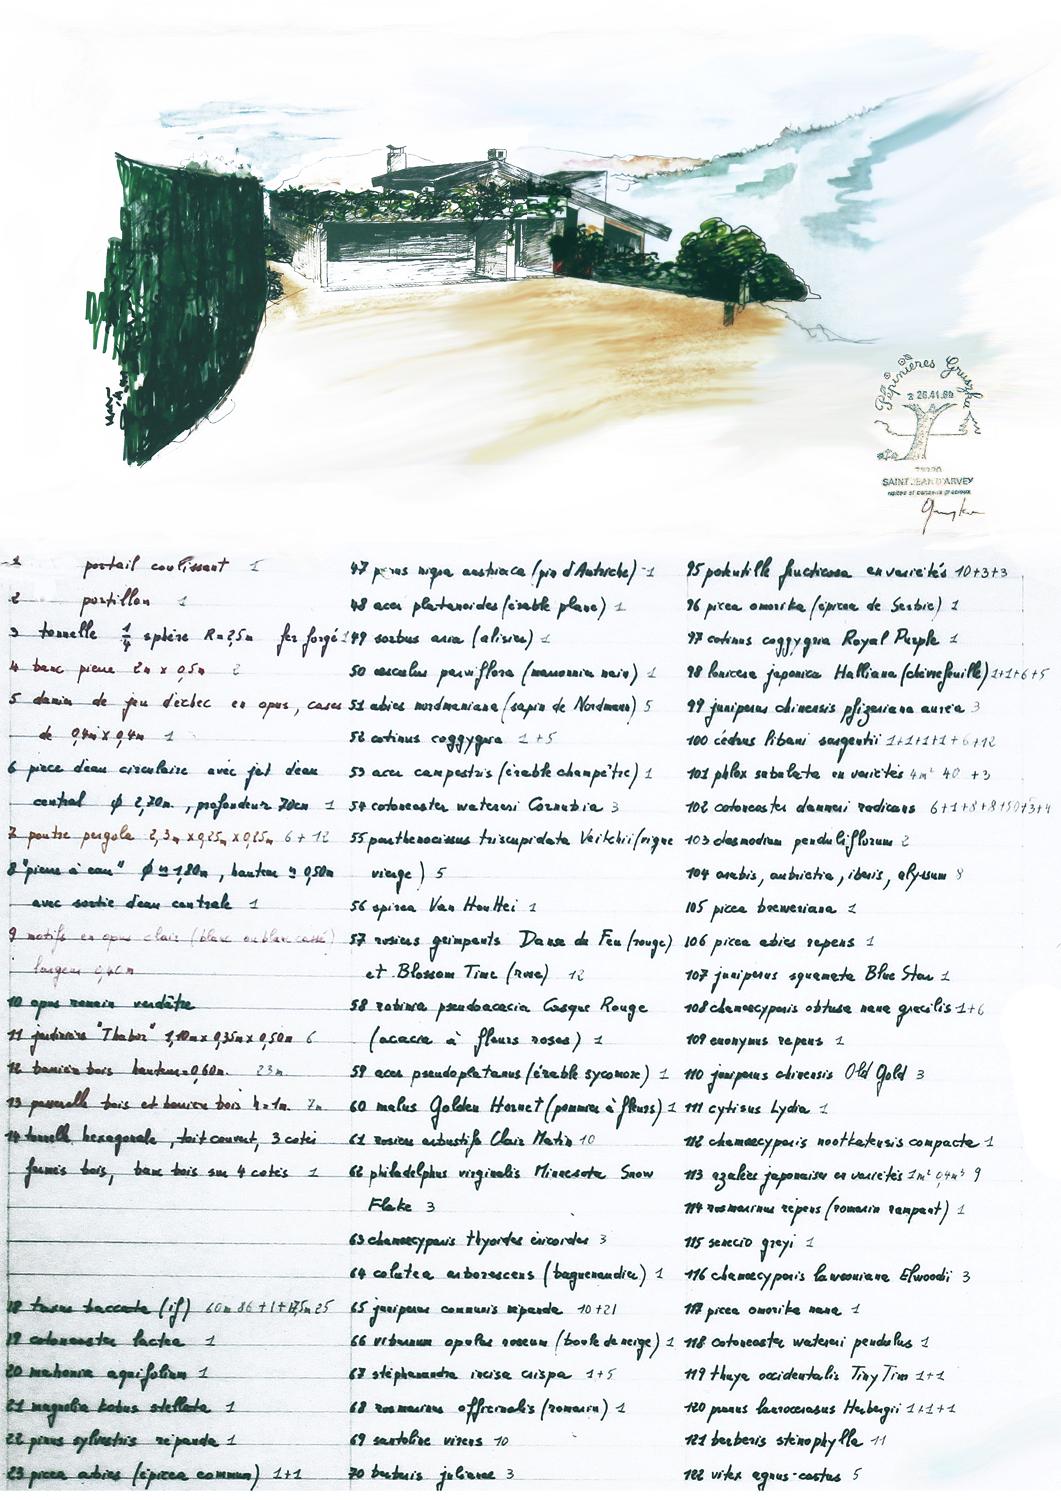 Pépinières Gruszka
SAINT JEAN D'ARVEY
1 portail coulissant 1
2 portillon 1
3 tonnelle 1/4 sphère R=2,5m fer forgé 1
4 banc pierre 2m x 0,5m 2
5 damier de jeu d'échec en opus, cases
de 0,4m x 0,4m 1
6 pièce d'eau circulaire avec jet d'eau
central ϕ 2,70m, profondeur 70cm 1
7 poutre pergola 2,3m x 0,25m x 0,25m 6+12
8 "pierre à eau" ϕ ≃ 1,80m, hauteur ≃ 0,50m
avec sortie d'eau centrale 1
9 motifs en opus clair (blanc ou blanc cassé)
largeur 0,40m
10 opus romain verdâtre
11 jardinière "Thabor" 1,10m x 0,35m x 0,50m 6
12 barrière bois hauteur=0,60m. 23m
13 passerelle bois et barrière bois h=1m. 7m
14 tonnelle hexagonale, toit couvert, 3 cotés
fermés bois, banc bois sur 4 cotés 1
18 taxus baccata (if) 60m 86+1+
19 cotoneaster lactea 1
20 mahonia aquifolium 1
21 magnolia kobus stellata 1
22 pinus sylvestris repanda 1
23 picea abies (épicea commun) 1+1
47 pinus nigra austriaca (pin d'Autriche) 1
48 acer platanoides (érable plane) 1
49 sorbus aria (alisier) 1
50 aesculus parviflora (marronnier nain) 1
51 abies nordmaniana (sapin de Nordmann) 5
52 cotinus coggygria 1+5
53 acer campestris (érable champêtre) 1
54 cotoneaster watereri Cornubia 3
55 parthenocissus tricuspidata Veitchii (vigne
vierge) 5
56 spirea Van Houttei 1
57 rosiers grimpants Danse du Feu (rouge)
et Blossom Time (rose) 12
58 robinia pseudoacacia Casque Rouge
(acacia à fleurs roses) 1
59 acer pseudoplatanus (érable sycomore) 1
60 malus Golden Hornet (pommier à fleurs) 1
61 rosiers arbustifs Clair Matin 10
62 philadelphus virginalis Minnesota Snow
Flake 3
63 chamaecyparis thyoides ericoides 3
64 colutea arborescens (baguenaudier) 1
65 juniperus communis repanda 10+21
66 viburnum opulus roseum (boule de neige) 1
67 stephanandra incisa crispa 1+5
68 rosmarinus officinalis (romarin) 1
69 santoline virens 10
70 berberis julianae 3
95 potentille fructicosa en varietés 10+3+3
96 picea omorika (épicea de Serbie) 1
97 cotinus coggygria Royal Purple 1
98 lonicera japonica Halliana (chèvrefeuille) 1+1+6+5
99 juniperus chinensis pfizeriana aurea 3
100 cédrus libani sargentii 1+1+1+1+6+12
101 phlox subulata en varietés 4m² 40 +3
102 cotoneaster dammeri radicans 6+1+8+8+50+3+4
103 desmodium penduliflorum 2
104 arabis, aubrietia, iberis, alyssum 8
105 picea breweriana 1
106 picea abies repens 1
107 juniperus squamata Blue Star 1
108 chamaecyparis obtusa nana gracilis 1+6
109 euonymus repens 1
110 juniperus chinensis Old Gold 3
111 cytisus Lydia 1
112 chamaecyparis nootkatensis compacta 1
113 azalées japonaises en varietés 1m² 0,4m³ 9
114 rosmarinus repens (romarin rampant) 1
115 senecio greyi 1
116 chamaecyparis lawsoniana Elwoodi 3
117 picea omorika nana 1
118 cotoneaster watereri pendulus 1
119 thuya occidentalis Tiny Tim 1+1
120 prunus laurocerasus Herbergii 1+1+1
121 berberis stenophylla 11
122 vitex agnus-castus 5